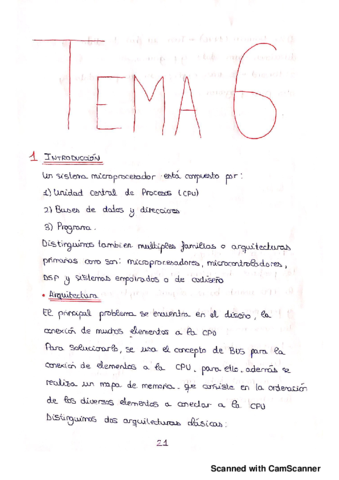 TEMA 6
1 INTRODUCCIÓN
Un sistema microprocesador está compuesto por:
1) Unidad Central de Proceso (CPU)
2) Buses de datos y direcciones
3) Programa.
Distinguimos tambien multiples familias o arquitecturas
primarias como son: microprocesadores, microcontroladores,
DSP y sistemas empotrados o de codiseño
• Arquitectura
El principal problema se encuentra en el diseño, la
conexión de muchos elementos a la CPU
Para solucionarlo, se usa el concepto de Bus para la
conexión de elementos a la CPU, para ello, además se
realiza un mapa de memoria, que consiste en la ordenación
de los diversos elementos a conectar a la CPU
Distinguimos dos arquitecturas clásicas:
21
Scanned with CamScanner